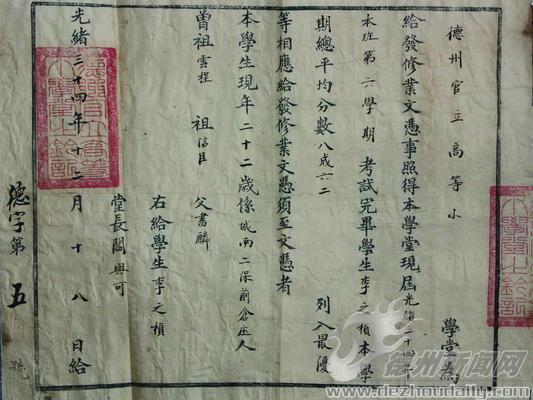 德州官立高等小學堂為
給發修業文憑事照得本學堂現屆光緒三十四年
本班第六學期考試完畢學生李之楨本學
期總平均分數八成六二列入最優
等相應給發修業文憑須至文憑者
本學生現年二十二歲係城南二保前倉庄人
曾祖雲程 祖信臣 父書麟
右給學生李之楨
堂長閻與可
光緒三十四年十二月十八日給
德字第五號
德州新闻网
www.dezhoudaily.com